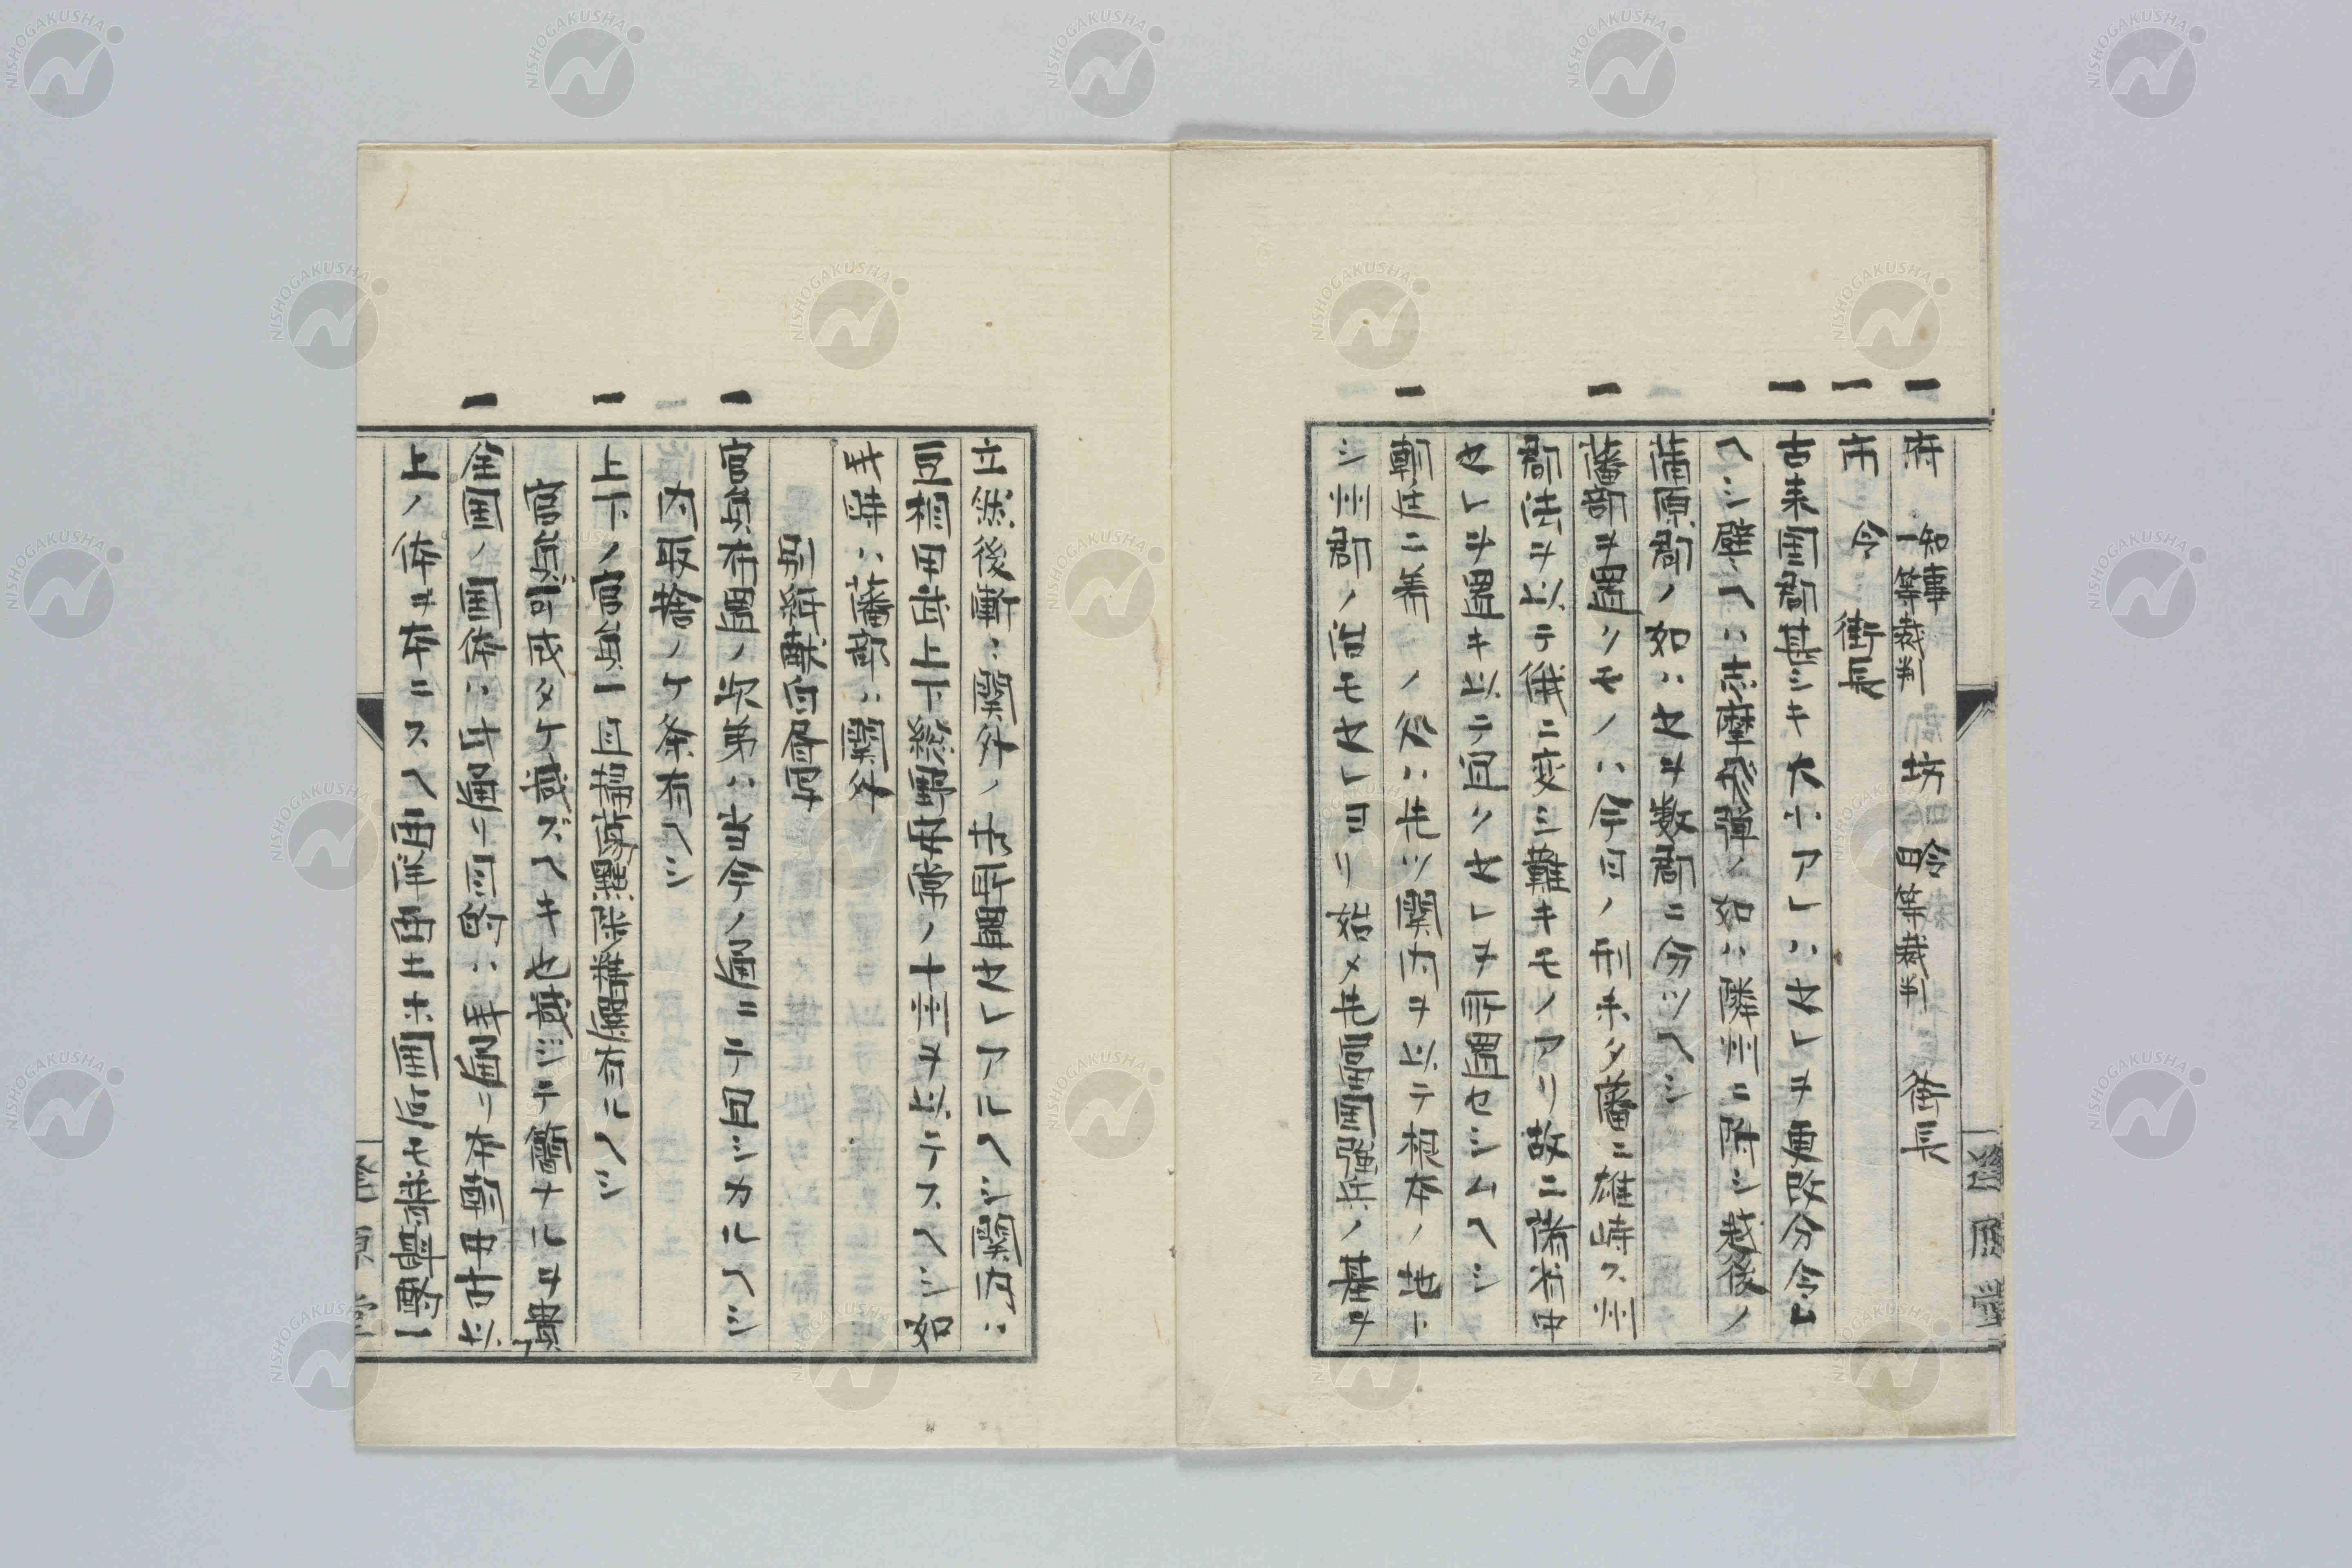 一 府 知事 一等裁判 坊 令 曰等裁判 街長
一 市 令 街長
一 古来国郡甚シキ大小アレハ之レヲ更改分合ム
ヘシ譬ヘハ志摩飛弾ノ如ハ隣州ニ附シ越後ノ
蒲原郡ノ如ハ之ヲ数郡ニ分ツヘシ
一 藩部ヲ置クモノハ今日ノ刑未タ藩ニ雄峙ス州
郡法ヲ以テ俄ニ変シ難キモノアリ故ニ藩有由
之レヲ置キ以テ宜ク之レヲ所置セシムヘシ
一 朝廷ニ差ノ処ハ先ツ関内ヲ以テ根本ノ地ト
シ州郡ノ治モ之レヨリ始メ先富国強兵ノ基ヲ
立然後漸ニ関外ノ 所置之レアルヘシ関内ハ
豆相甲武上下総野 常ノ十州ヲ以テスヘシ如
此時ハ藩部ハ関外
別紙献白届写
一 官員布置ノ次弟ハ当今ノ通ニテ且シカルヘシ
内取捨ノケ条有ヘシ
一 上下ノ官員一旦掃蕩黜陟精選有ルヘシ
官員可成タケ減ズヘキ也減ジテ簡ナルヲ貴フ
一 全国ノ国体ハ此通リ目的ハ此通リ本朝中古以
上ノ体ヲ本ニスヘ西洋西土ノ国法モ普斟酌一
NISHOGAKUSHA